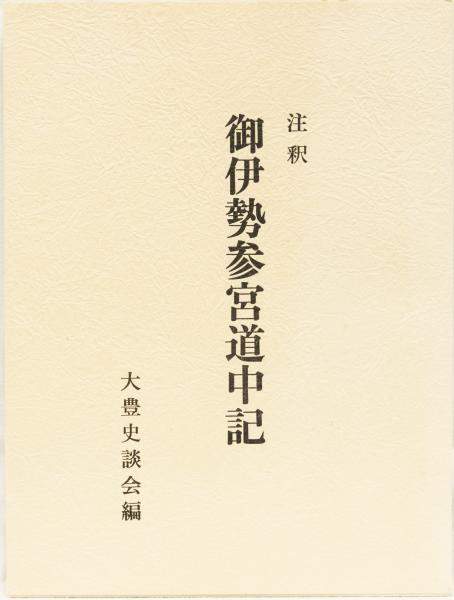 注釈
御伊勢参宮道中記
大豊史談会編